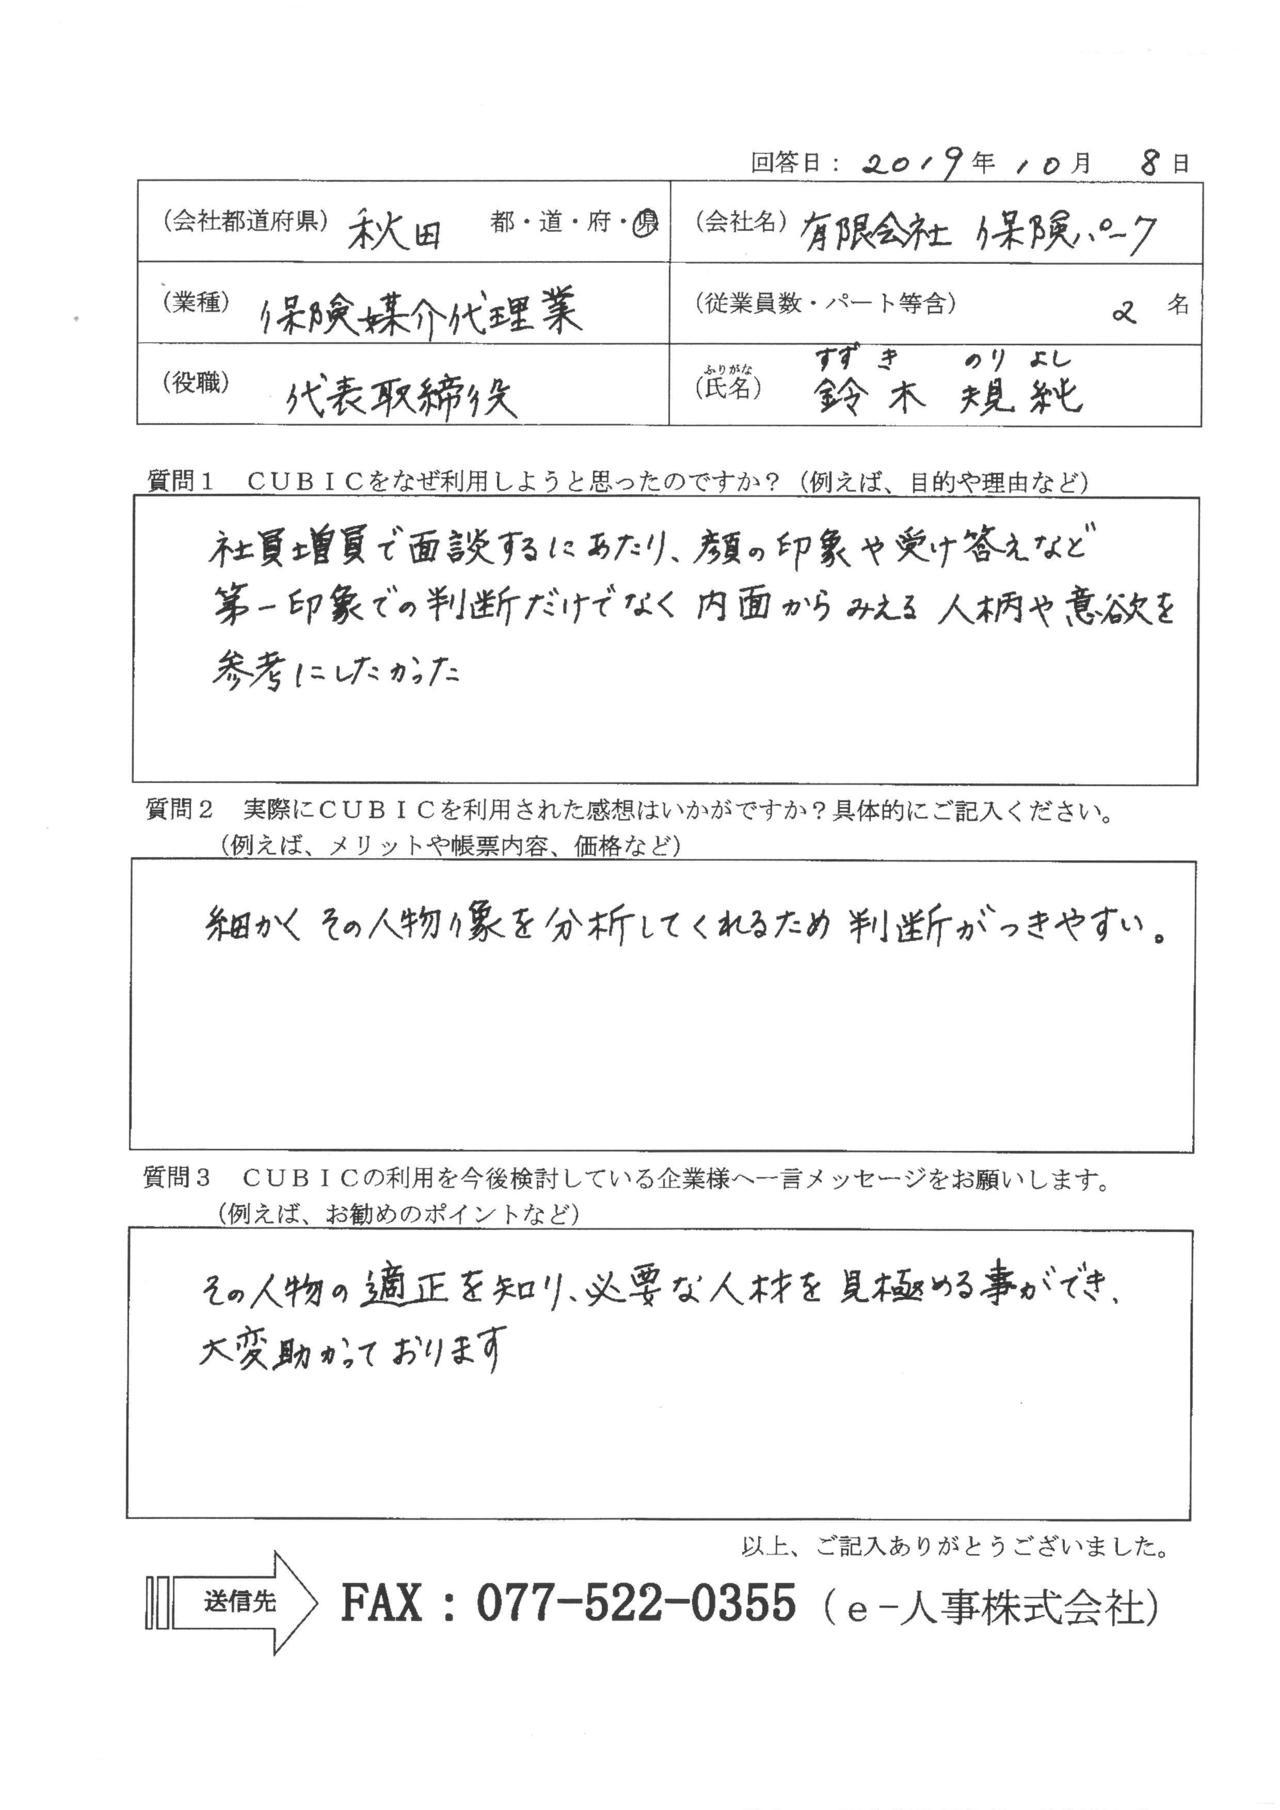 回答日：2019年10月 8日
（会社都道府県） 秋田 都・道・府・県
（会社名） 有限会社 保険パーク
（業種） 保険媒介代理業
（従業員数・パート等含） 2 名
（役職） 代表取締役
すずき のりよし
ふりがな
（氏名） 鈴木 規純
質問１ ＣＵＢＩＣをなぜ利用しようと思ったのですか？（例えば、目的や理由など）
社員増員で面談するにあたり、顔の印象や受け答えなど
第一印象での判断だけでなく 内面からみえる 人柄や意欲を
参考にしたかった
質問２ 実際にＣＵＢＩＣを利用された感想はいかがですか？具体的にご記入ください。
（例えば、メリットや帳票内容、価格など）
細かく その人物像を分析してくれるため 判断がつきやすい。
質問３ ＣＵＢＩＣの利用を今後検討している企業様へ一言メッセージをお願いします。
（例えば、お勧めのポイントなど）
その人物の適正を知り、必要な人材を見極める事ができ、
大変助かっております
以上、ご記入ありがとうございました。
送信先 FAX：077-522-0355（ｅ-人事株式会社）